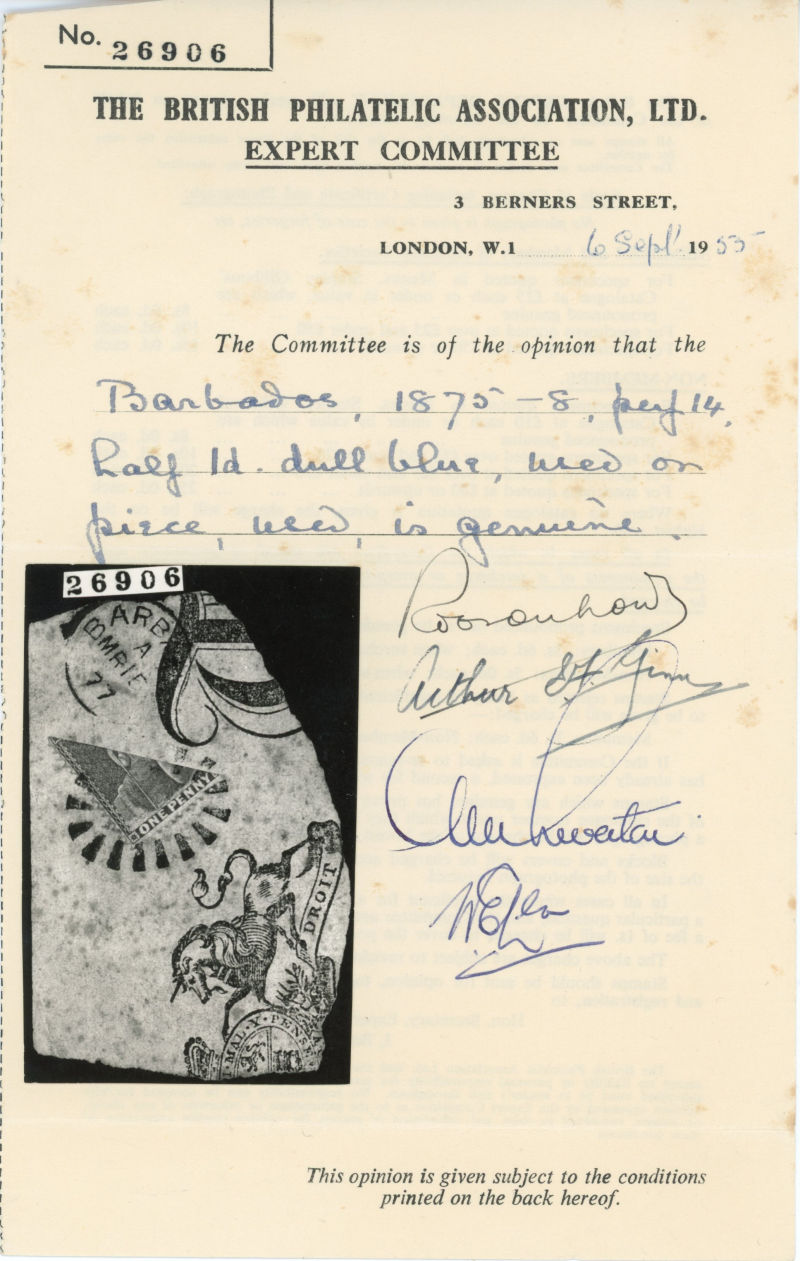 No. 26906
THE BRITISH PHILATELIC ASSOCIATION, LTD.
EXPERT COMMITTEE
3 BERNERS STREET,
LONDON, W.1 6 Sept' 1955
The Committee is of the opinion that the
Barbados, 1875-8, perf 14,
half 1d. dull blue, used on
piece, used, is genuine.
26906
BARB
A
MR
77
ONE PENNY
DROIT
MAL·Y·PENSE
Arthur
This opinion is given subject to the conditions
printed on the back hereof.